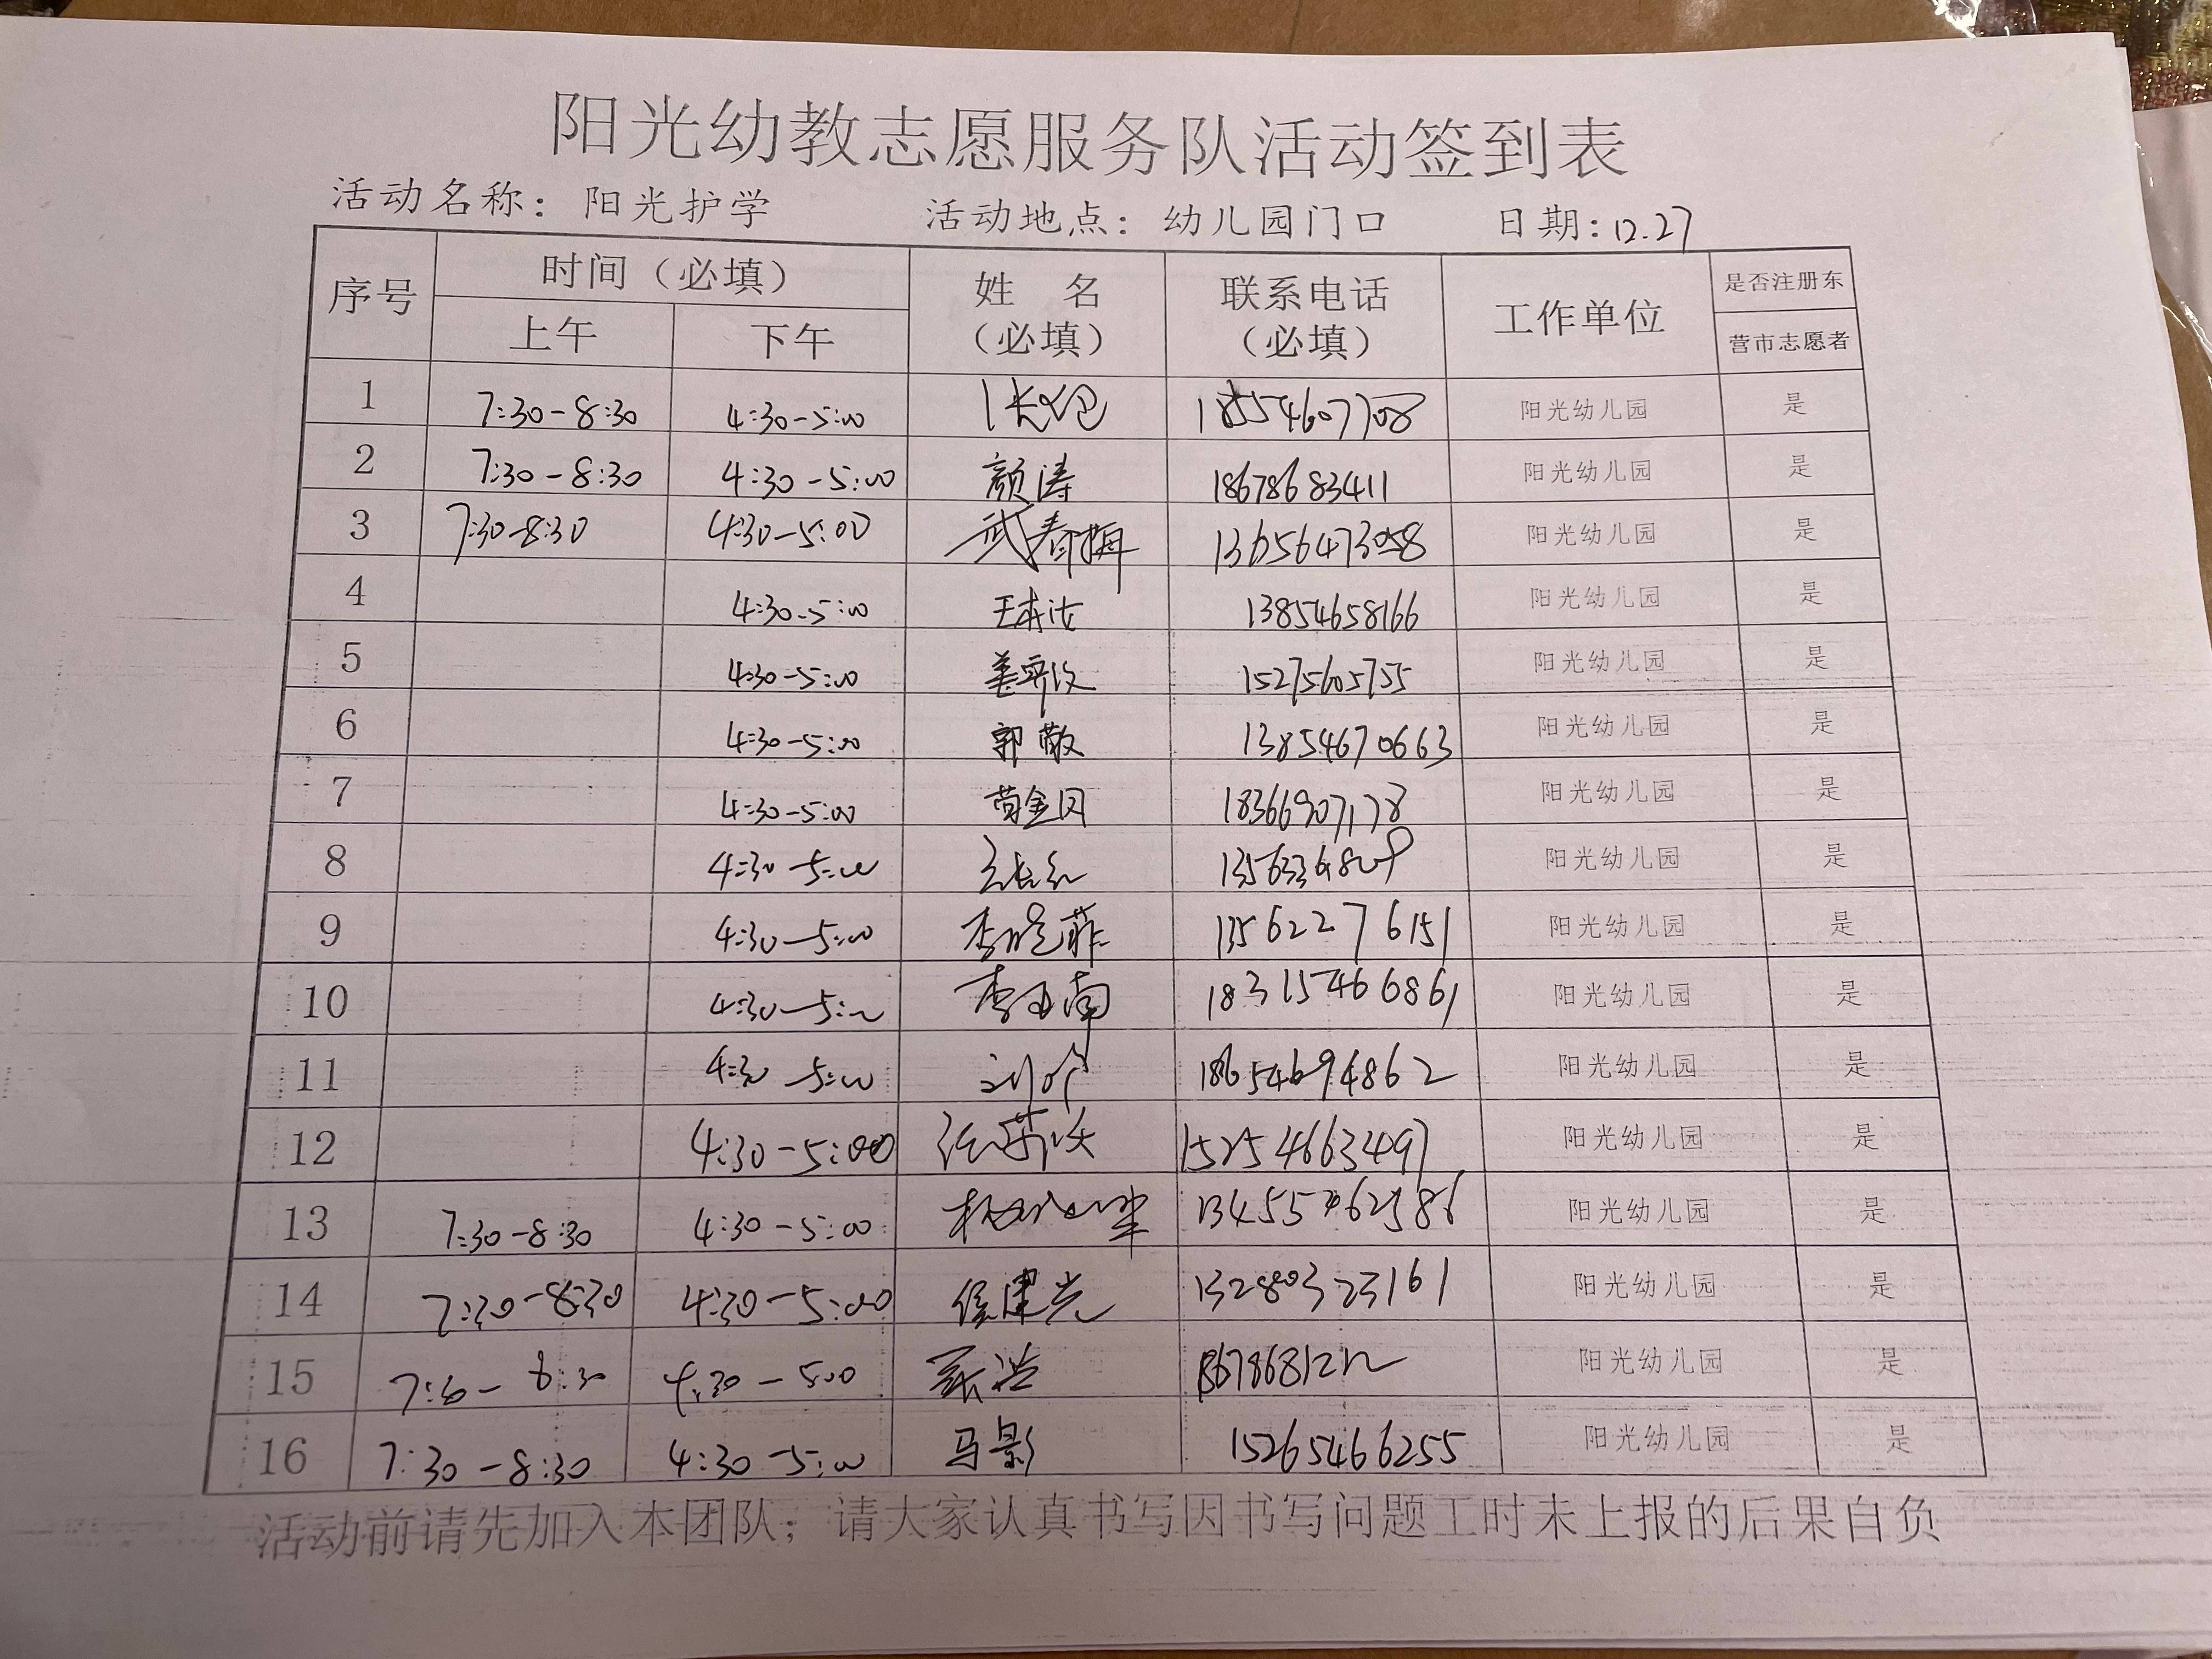 阳光幼教志愿服务队活动签到表
活动名称：阳光护学 活动地点：幼儿园门口 日期：12.27
序号 时间（必填） 姓 名（必填） 联系电话（必填） 工作单位 是否注册东营市志愿者
上午 下午
1 7:30-8:30 4:30-5:00 18554607708 阳光幼儿园 是
2 7:30-8:30 4:30-5:00 颜涛 18678683411 阳光幼儿园 是
3 7:30-8:30 4:30-5:00 武春梅 13656473058 阳光幼儿园 是
4 4:30-5:00 13854658166 阳光幼儿园 是
5 4:30-5:00 15275605755 阳光幼儿园 是
6 4:30-5:00 郭敬 13854670663 阳光幼儿园 是
7 4:30-5:00 18366907178 阳光幼儿园 是
8 4:30-5:00 阳光幼儿园 是
9 4:30-5:00 李晓菲 13562276151 阳光幼儿园 是
10 4:30-5:00 李亚南 18315466861 阳光幼儿园 是
11 4:30-5:00 18654694862 阳光幼儿园 是
12 4:30-5:00 15254663497 阳光幼儿园 是
13 7:30-8:30 4:30-5:00 阳光幼儿园 是
14 7:30-8:30 4:30-5:00 侯建光 13280323161 阳光幼儿园 是
15 4:30-5:00 阳光幼儿园 是
16 7:30-8:30 4:30-5:00 马影 15265466255 阳光幼儿园 是
活动前请先加入本团队；请大家认真书写因书写问题工时未上报的后果自负